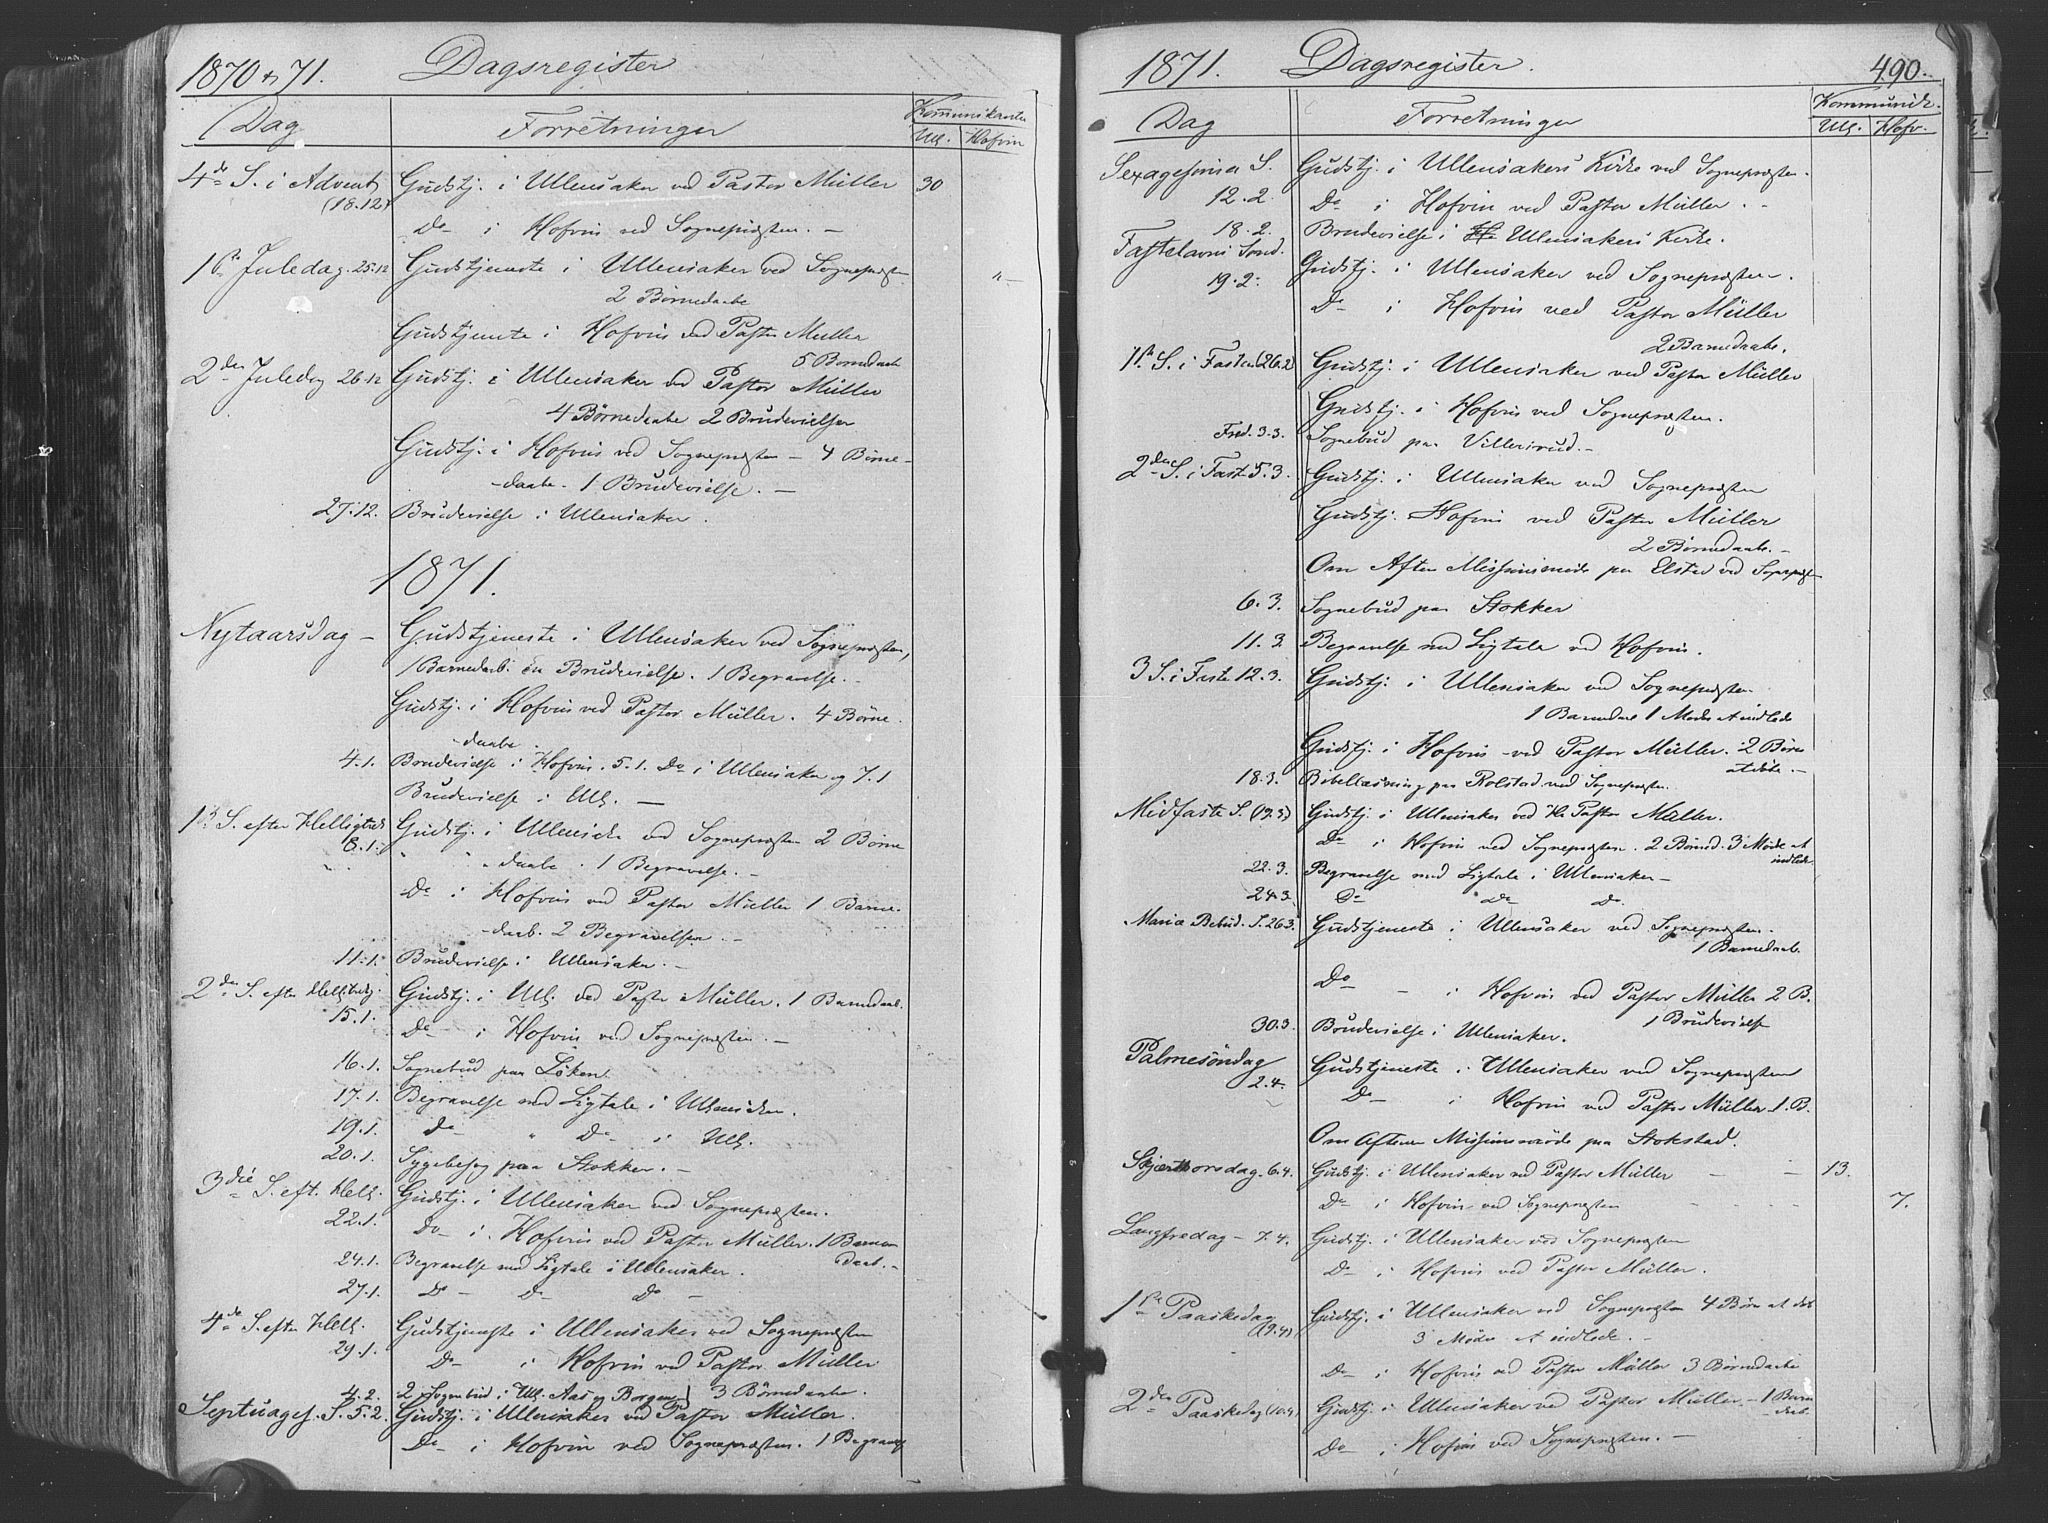 1870 & 71. Dagsregister
Dag Forretninger Kommunikanter
Ull. Hofvin
4de S. i Advent Gudstj. i Ullensaker ved Pastor Müller 30
(18.12) Do i Hofvin ved Sognepræsten. —
1ste Juledag. 25.12 Gudstjeneste i Ullensaker ved Sognepræst "—
2 Børnedaabe
Gudstjeneste i Hofvin ved Pastor Müller
5 Børnedaabe
2den Juledag 26.12 Gudstj. i Ullensaker ved Pastor Müller
4 Børnedaabe 2 Brudevielser
Gudstj. i Hofvin ved Sognepræsten — 4 Børne-
daabe - 1 Brudevielse. —
27.12. Brudevielse i Ullensaker.
1871.
Nytaarsdag — Gudstjeneste i Ullensaker ved Sognepræsten,
1 Barnedaab. en Brudevielse. 1 Begravelse. —
Gudstj. i Hofvin ved Pastor Müller. 4 Børne-
daabe.
4.1. Brudevielse i Hofvin. 5.1. Do i Ullensaker og 7.1
Brudevielse i Ull. —
1ste S. efter Helligtrek Gudstj. i Ullensaker ved Sognepræsten 2 Børne
8.1. daabe. 1 Begravelse. —
Do i Hofvin ved Pastor Müller 1 Barne-
daab. 2 Begravelser. —
11.1. Brudevielse i Ullensaker. —
2den S. efter Helligtrek. Gudstj. i Ull. ved Pastor Müller. 1 Barnedaab.
15.1. Do i Hofvin ved Sognepræsten. —
16.1. Sognebud paa Løken.
17.1. Begravelse med Ligtale i Ullensaker.
19.1. Do " Do i Ull.
20.1. Sygebesøg paa Stokker. —
3die S. eft. Hell. Gudstj. i Ullensaker ved Sognepræsten.
22.1. Do i Hofvin ved Pastor Müller. 1 Barne
daab. —
24.1. Begravelse med Ligtale i Ullensaker.
27.1. Do — Do Do —
4de S. efter Hell. Gudstjeneste i Ullensaker ved Sognepræsten
29.1. Do i Hofvin ved Pastor Müller
4.2. 2 Sognebud i Ull. Aas og Borgen 3 Børnedaabe.
Septuages. S. 5.2. Gudstj. i Ullensaker ved Pastor Müller.
Do i Hofvin ved Sognepræsten. 1 Begravels
1871. Dagsregister. 490.
Dag Forretninger Kommunik.
Ull. Hofv.
Sexagesima S. Gudstj. i Ullensakers Kirke ved Sognepræsten.
12.2. Do i Hofvin ved Pastor Müller.
18.2. Brudevielse i Ullensakers Kirke.
Fastelavns Sønd. Gudstj. i Ullensaker ved Sognepræsten.
19.2. Do i Hofvin ved Pastor Müller
2 Barnedaabe.
1ste S. i Fasten (26.2) Gudstj. i Ullensaker ved Pastor Müller
Gudstj. i Hofvin ved Sognepræsten.
Fred. 3.3. Sognebud paa Villerud. —
2den S. i Faste 5.3. Gudstj. i Ullensaker ved Sognepræsten
Gudstj. Hofvin ved Pastor Müller
2 Børnedaabe. —
Om Aften Missionsmøde paa Elstad ved Sognepræst
6.3. Sognebud paa Stokker
11.3 Begravelse med Ligtale ved Hofvin.
3 S. i Faste 12.3. Gudstj. i Ullensaker ved Sognepræsten.
1 Barnedaab 1 Moder at indlede
Gudstj. i Hofvin ved Pastor Müller. 2 Børn
at døbe. —
18.3. Bibellæsning paa Rolstad ved Sognepræsten.
Midfaste S. (19.3) Gudstj. i Ullensaker ved Hr Pastor Müller.
Do i Hofvin ved Sognepræsten. 2 Børned. 3 Mødre at
indlede
22.3. Begravelse med Ligtale i Ullensaker —
24.3 Do " Do Do
Mariæ Bebud. S. 26.3. Gudstjeneste i Ullensaker ved Sognepræsten.
1 Barnedaab.
Do — i Hofvin ved Pastor Müller 2 B.
1 Brudevielse
30.3. Brudevielse i Ullensaker.
Palmesöndag Gudstjeneste i Ullensaker ved Sognepræsten
2.4. Do — i Hofvin ved Pastor Müller 1. B.
Om Aftenen Missionsmøde paa Stokstad.
Skjærthorsdag. 6.4. Gudstj. i Ullensaker ved Pastor Müller — — 13.
Do i Hofvin ved Sognepræsten 7.
Langfredag — 7.4. Gudstj. i Ullensaker ved Sognepræsten
Do i Hofvin ved Pastor Müller.
1ste Paaskedag Gudstj. i Ullensaker ved Sognepræsten 4 Børn at døbe
(9.4) 3 Mødre at indlede. —
Do i Hofvin ved Pastor Müller 3 Børnedaabe
2den Paaskedag (10.4) Gudstj. i Ullensaker ved Pastor Müller — 1 Barne
daab.
Do i Hofvin ved Sognepræsten. —